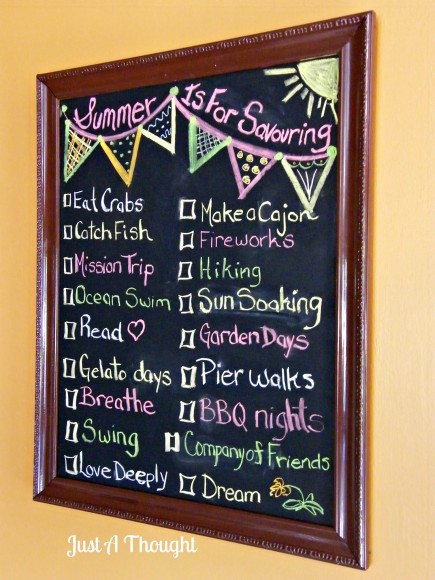 Summer Is For Savouring
Eat Crabs
Catch Fish
Mission Trip
Ocean Swim
Read
Gelato days
Breathe
Swing
Love Deeply
Make a Cajon
Fireworks
Hiking
Sun Soaking
Garden Days
Pier Walks
BBQ nights
Company of Friends
Dream
Just A Thought